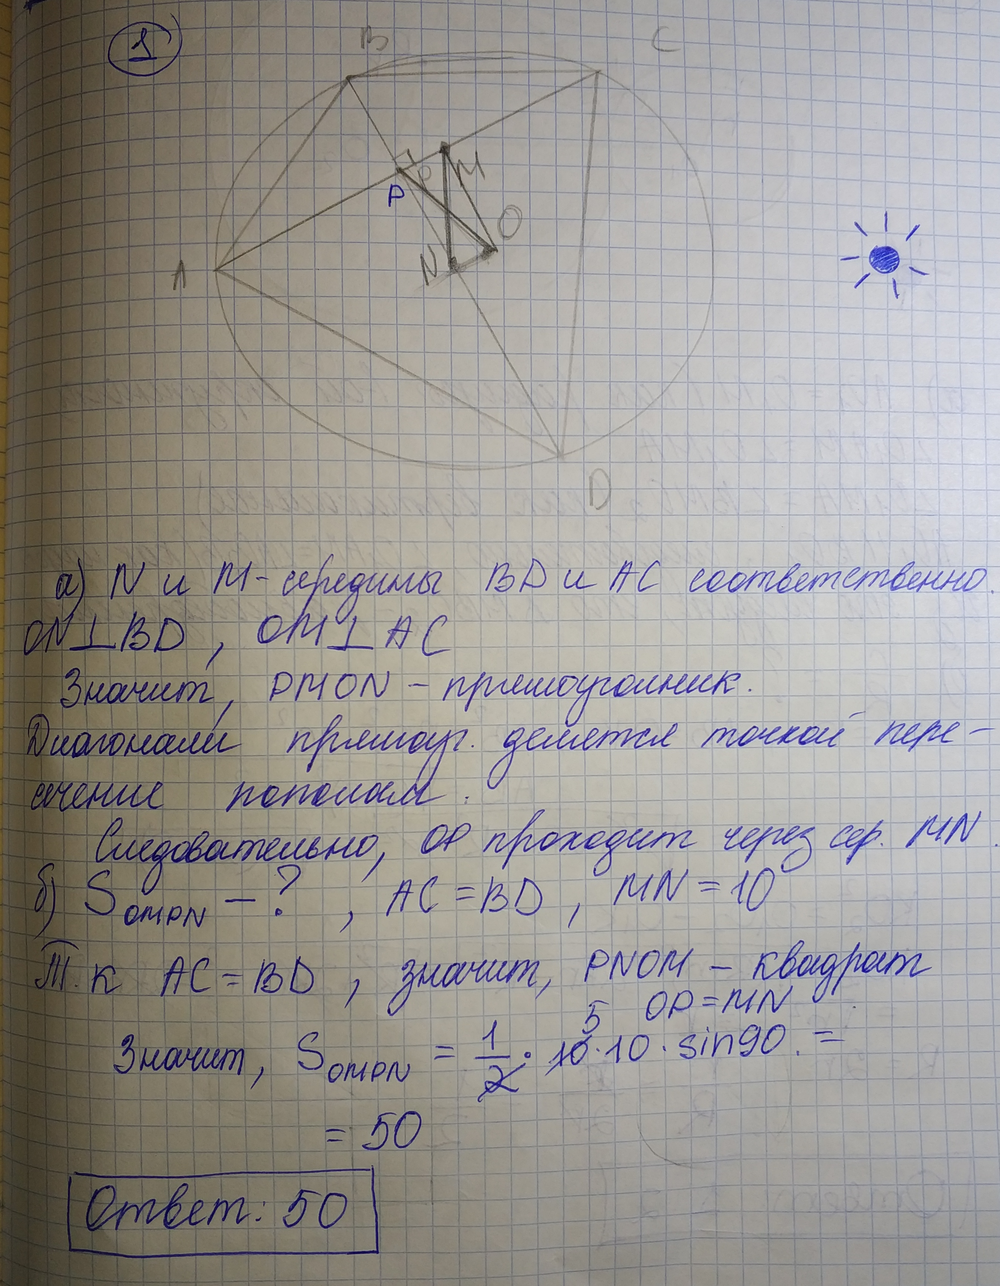 1
B
C
P
M
A
N
O
D
а) N и M - середины BD и AC соответственно.
ON⊥BD , OM⊥AC
Значит, PMON – прямоугольник.
Диагонали прямоуг. делятся точкой пере-
сечение пополам.
Следовательно, OP проходит через сер. MN.
б) S OMPN – ? , AC = BD , MN = 10
Т.к AC = BD , значит, PNOM – квадрат
OP = MN
Значит, S OMPN = 1/2 · 10 5 · 10 · sin90. =
= 50
Ответ: 50